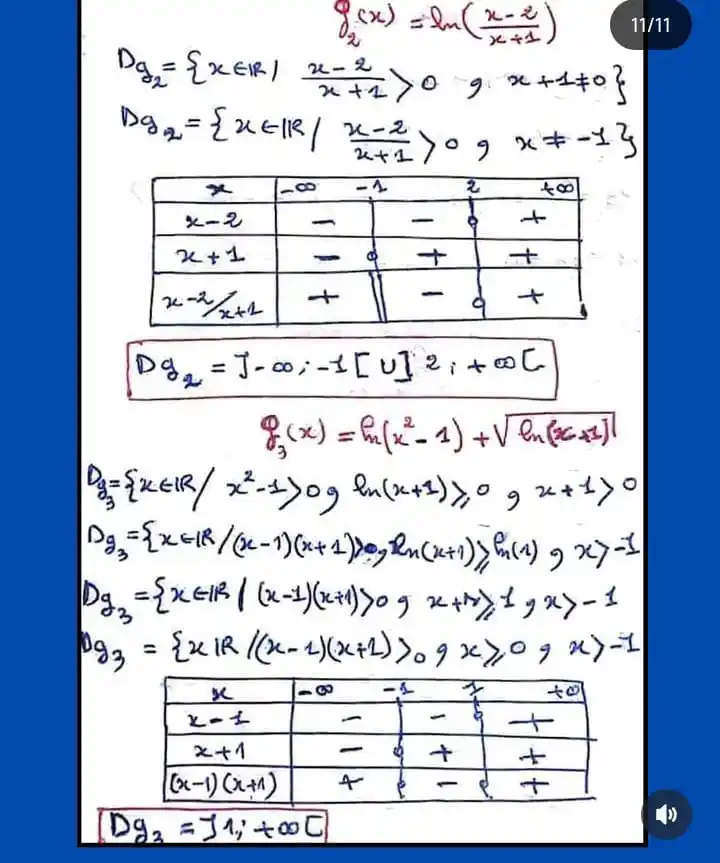 g₂(x) = ln(x-2/x+1)
11/11
Dg₂ = {x∈IR / x-2/x+1 > 0 و x+1≠0}
Dg₂ = {x∈IR / x-2/x+1 > 0 و x ≠ -1}
x -∞ -1 2 +∞
x-2 - - +
x+1 - + +
x-2/x+1 + - +
Dg₂ = ]-∞; -1[ U ]2; +∞[
g₃(x) = ln(x²-1) + √ln(x+1)
Dg₃ = {x∈IR / x²-1 > 0 و ln(x+1) ≥ 0 و x+1 > 0
Dg₃ = {x∈IR / (x-1)(x+1) > 0 و ln(x+1) ≥ ln(1) و x > -1
Dg₃ = {x∈IR / (x-1)(x+1) > 0 و x+1 ≥ 1 و x > -1
Dg₃ = {x IR / (x-1)(x+1) > 0 و x ≥ 0 و x > -1
x -∞ -1 1 +∞
x-1 - - +
x+1 - + +
(x-1)(x+1) + - +
Dg₃ = ]1; +∞[